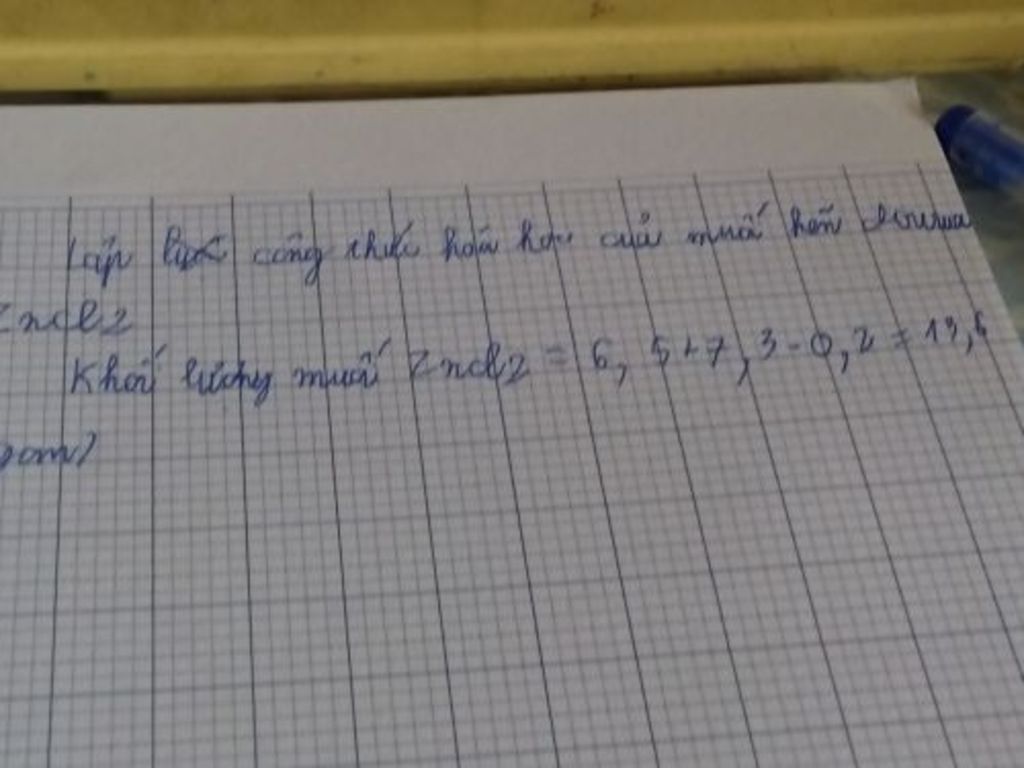 Lập lực công thức hoá học của muối kẽm clorua
ZnCl2
Khối lượng muối ZnCl2 = 6,5+7,3-0,2 = 13,6
gam)